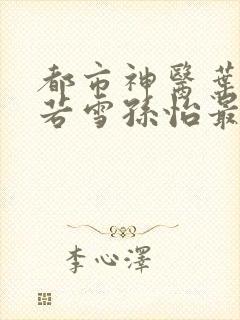 都市神醫葉
若雪孫怡最
李心澤